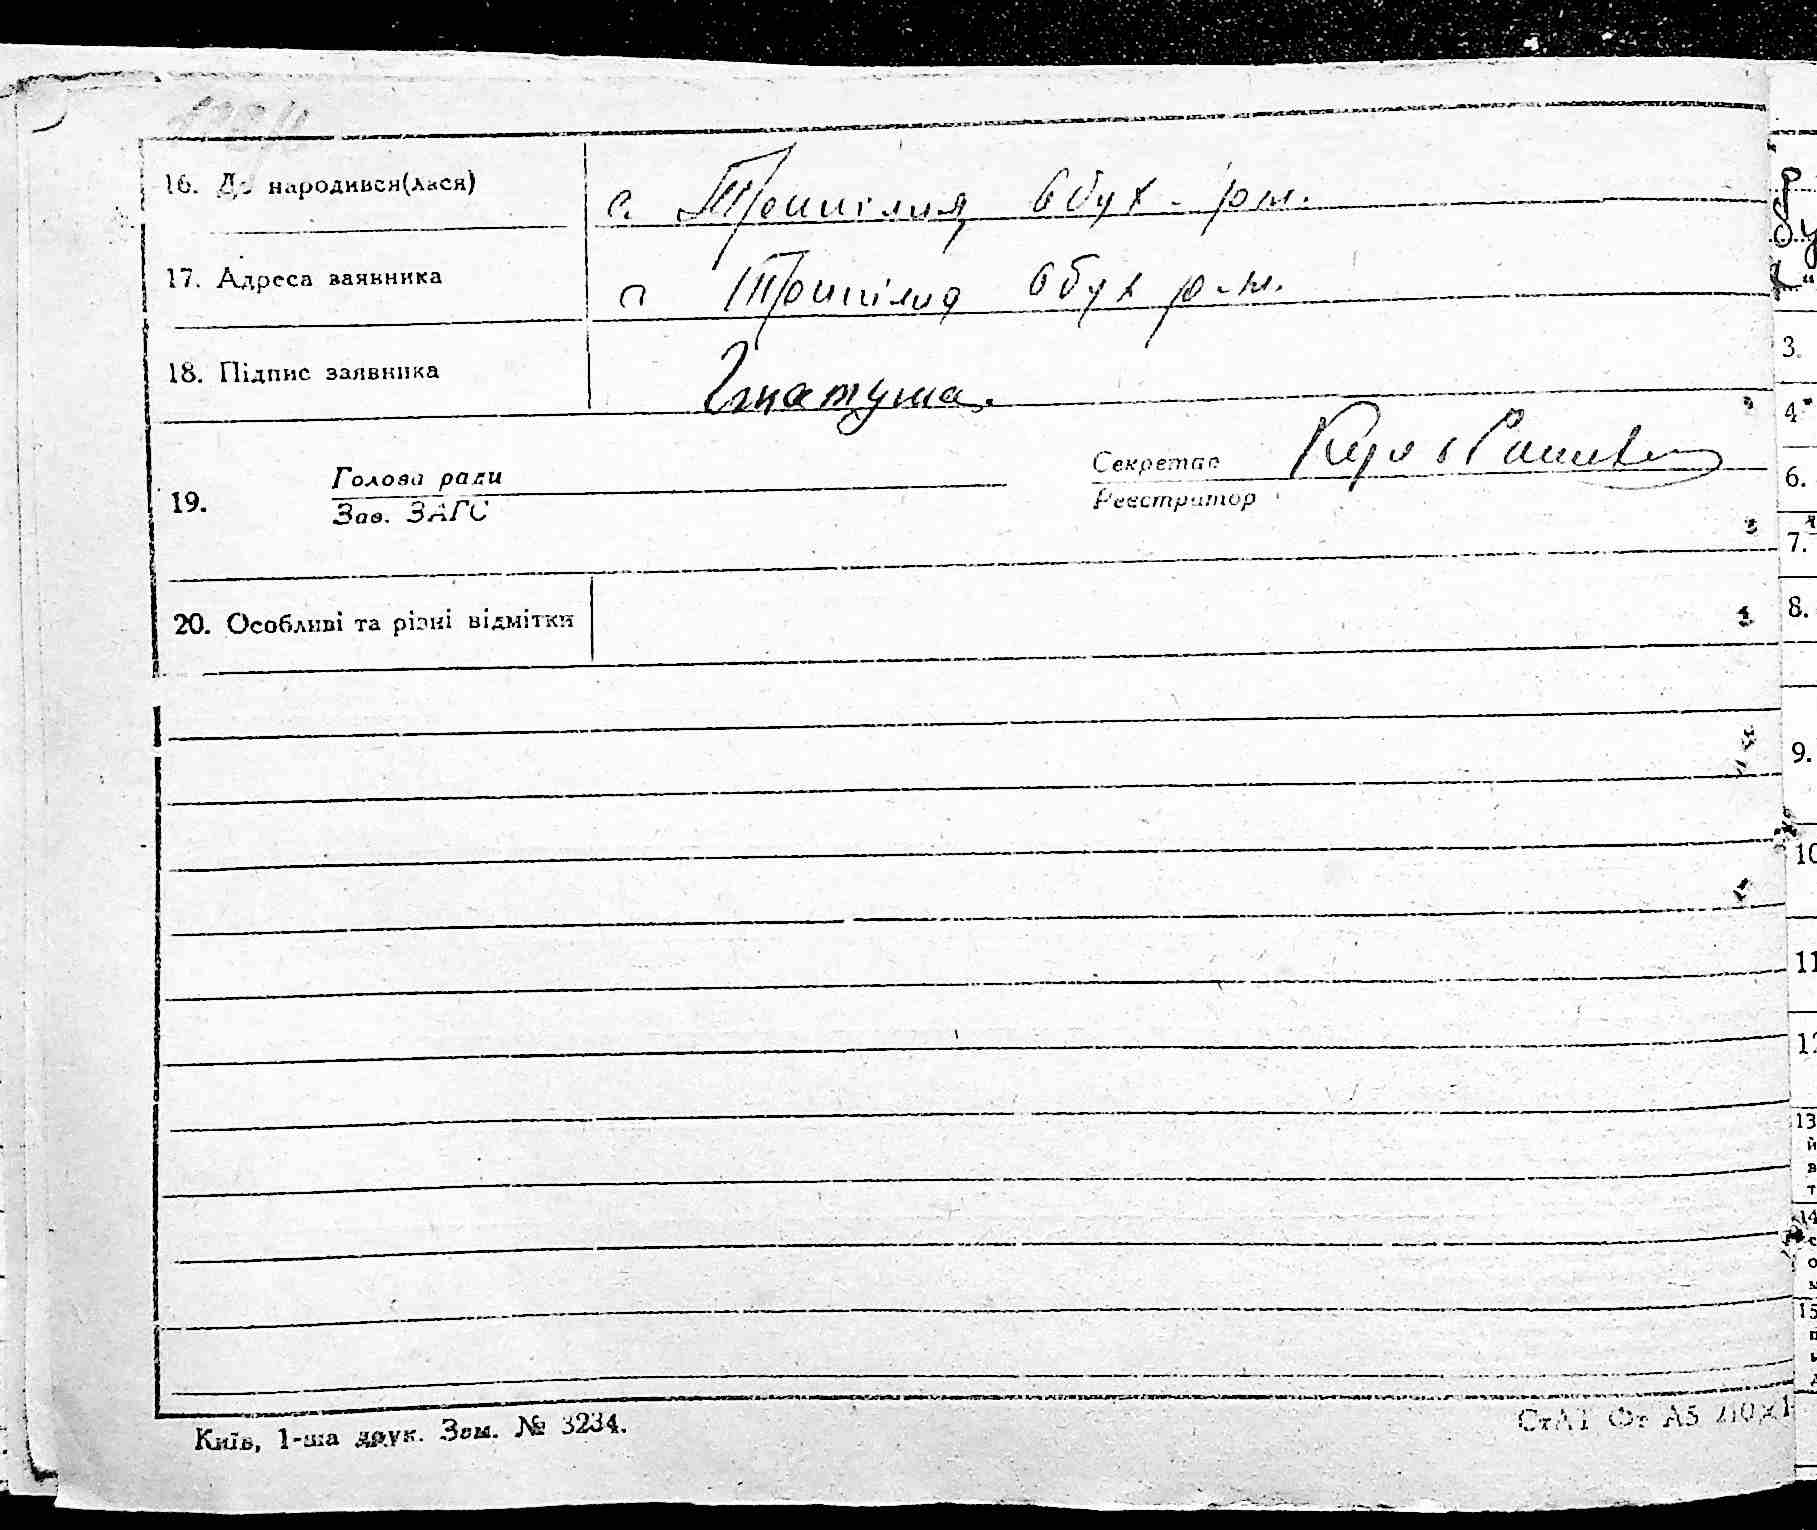 16. Де народився(лася) с. Трипілля Обух. р-н.
17. Адреса заявника с Трипілля Обух р-н.
18. Підпис заявника Ігнатуша.
Голова ради Секретар
19.
Зав. ЗАГС Реєстратор
20. Особливі та різні відмітки
Київ, 1-ша друк. Зам. № 3234.
3.
4
6.
7.
8.
9.
10
11
12
13
14
15